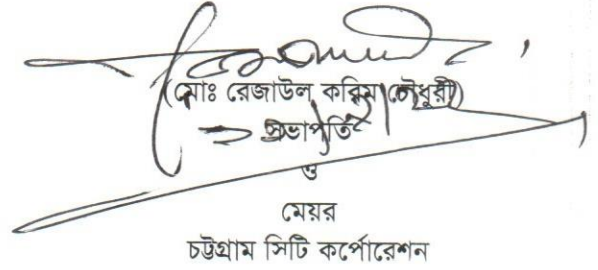 (মোঃ রেজাউল করিম চৌধুরী)
সভাপতি
ও
মেয়র
চট্টগ্রাম সিটি কর্পোরেশন